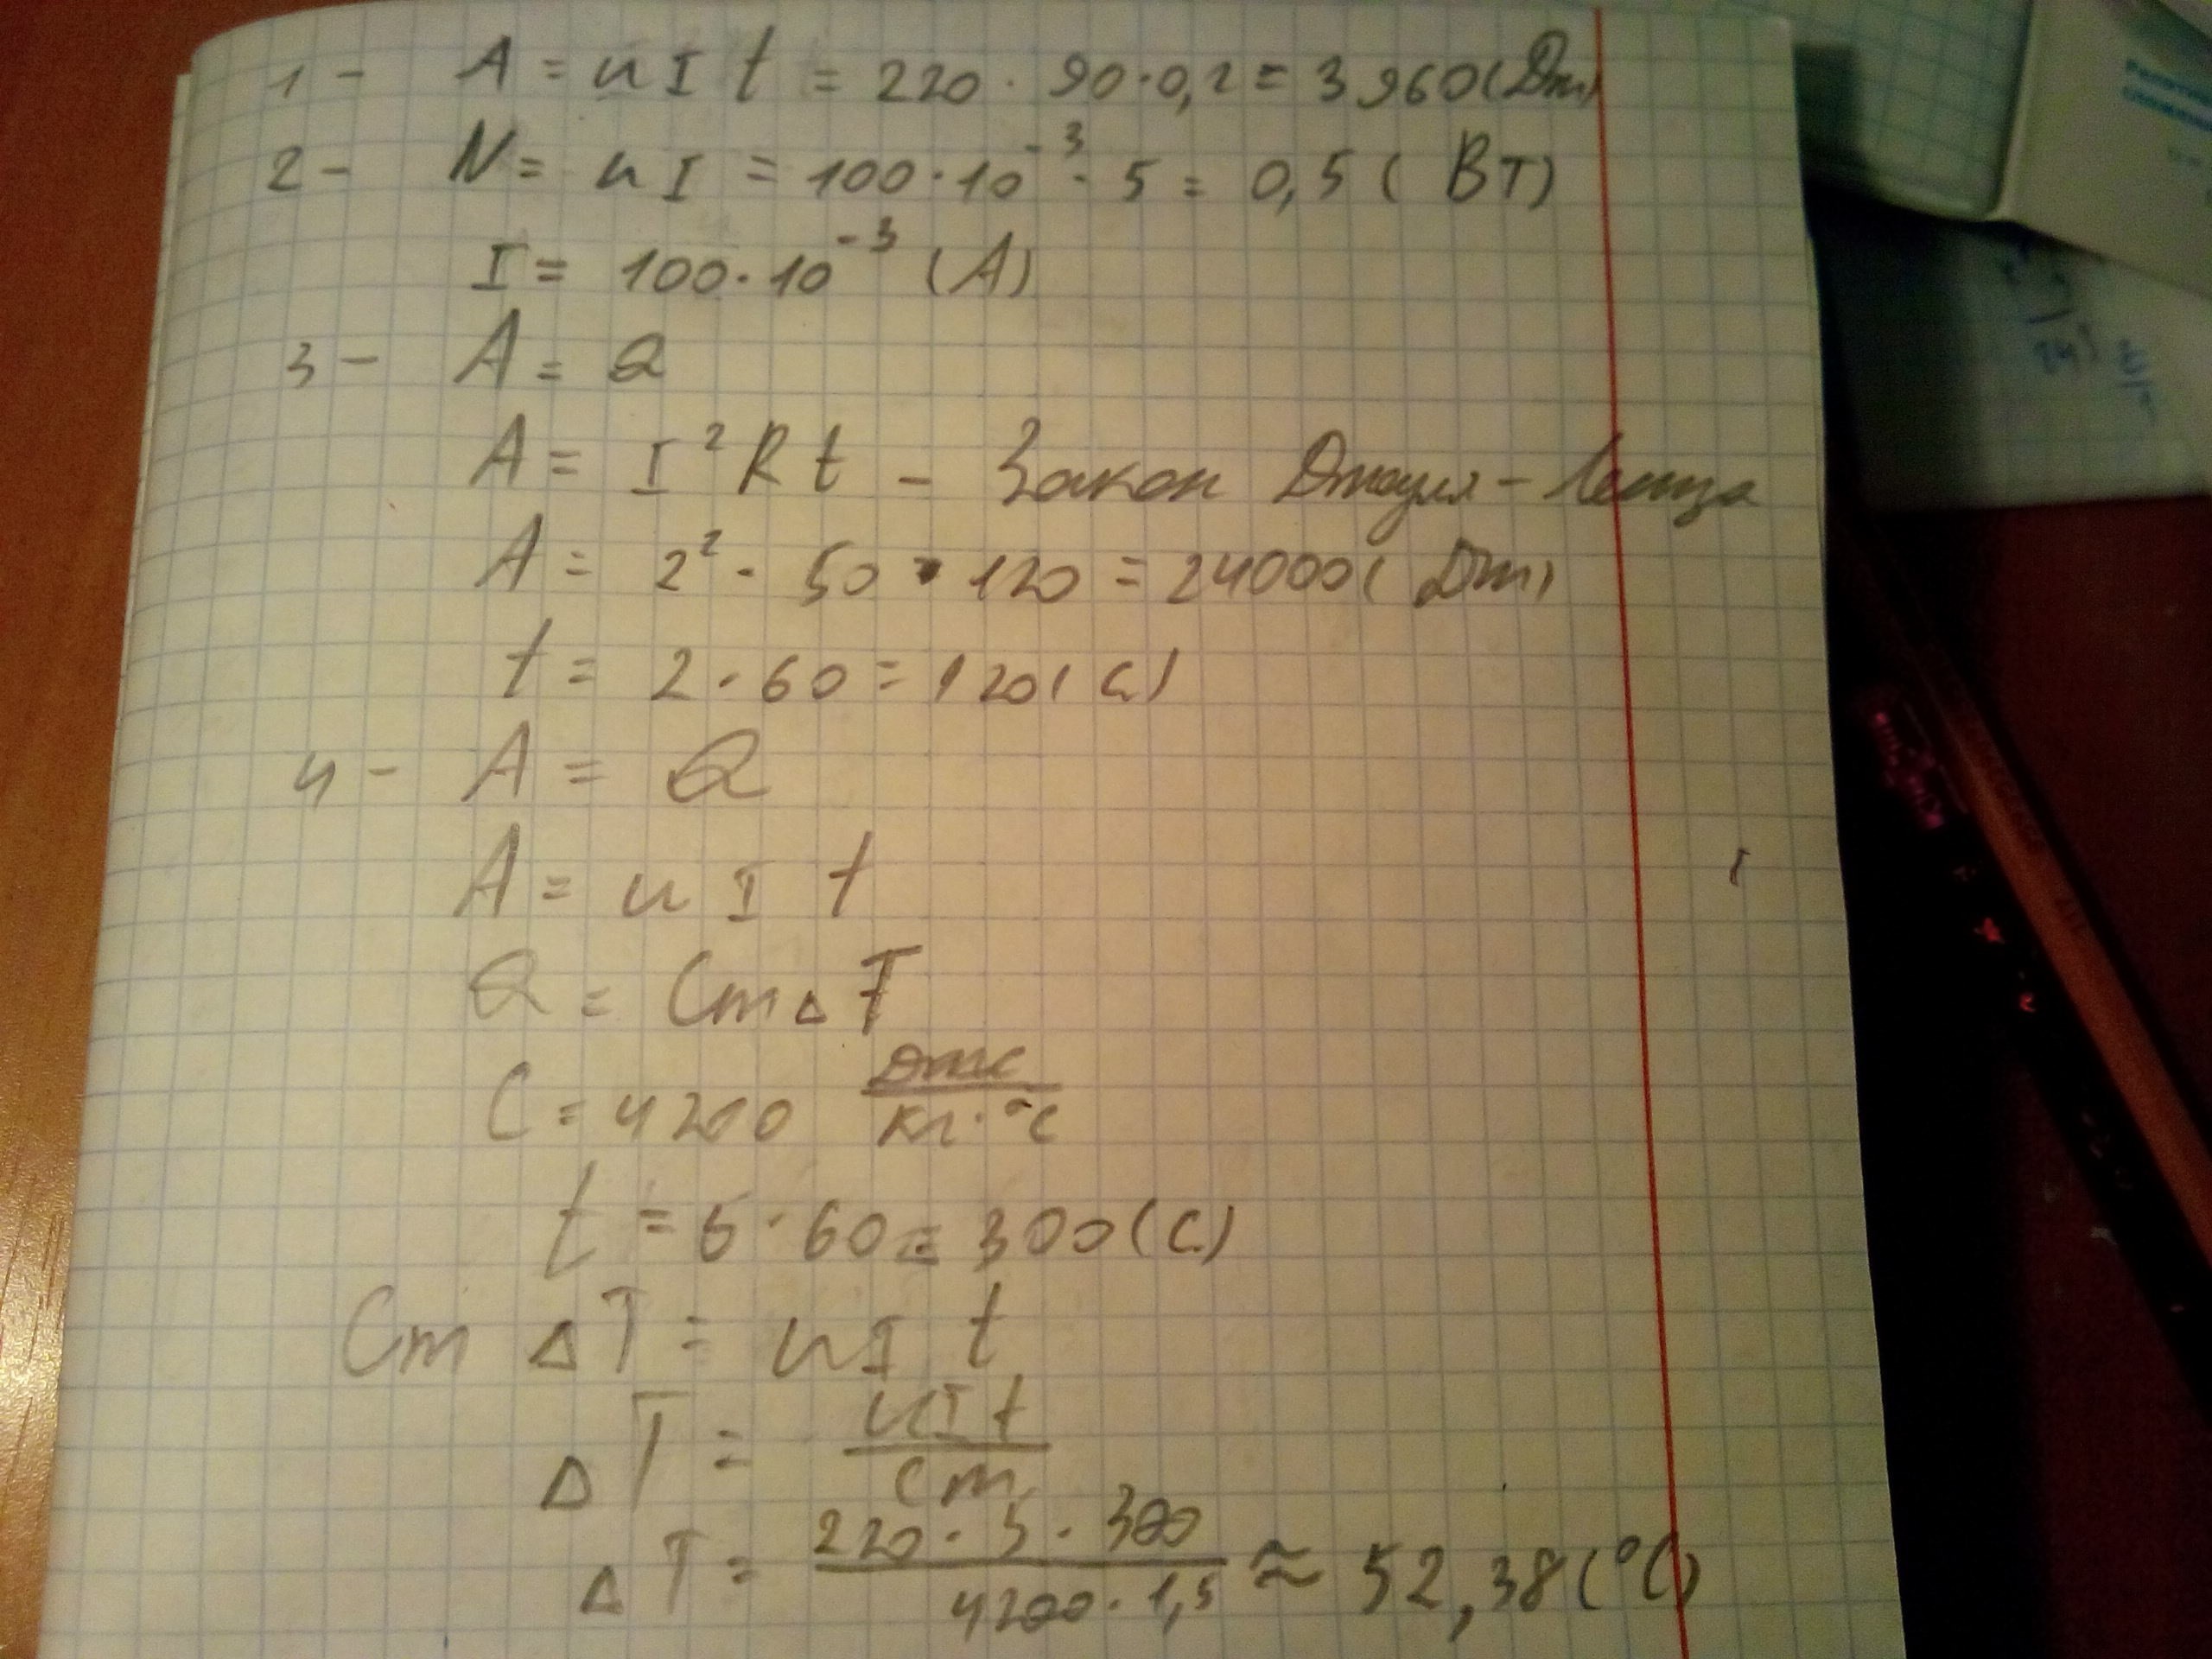 1 - A = u I t = 220 · 90 · 0,2 = 3960 (Дж)
2 - N = u I = 100 · 10⁻³ · 5 = 0,5 ( Вт)
I = 100 · 10⁻³ (А)
3 - A = Q
A = I² R t - Закон Джоуля - Ленца
A = 2² · 50 · 120 = 24000 ( Дж)
t = 2 · 60 = 120 ( с)
4 - A = Q
A = u I t
Q = Cm ΔT
C = 4200 Дж/кг·°с
t = 5 · 60 = 300 (с)
Cm ΔT = u I t
ΔT = uIt/cm
ΔT = 220 · 5 · 300/4200 · 1,5 ≈ 52,38 (°C)